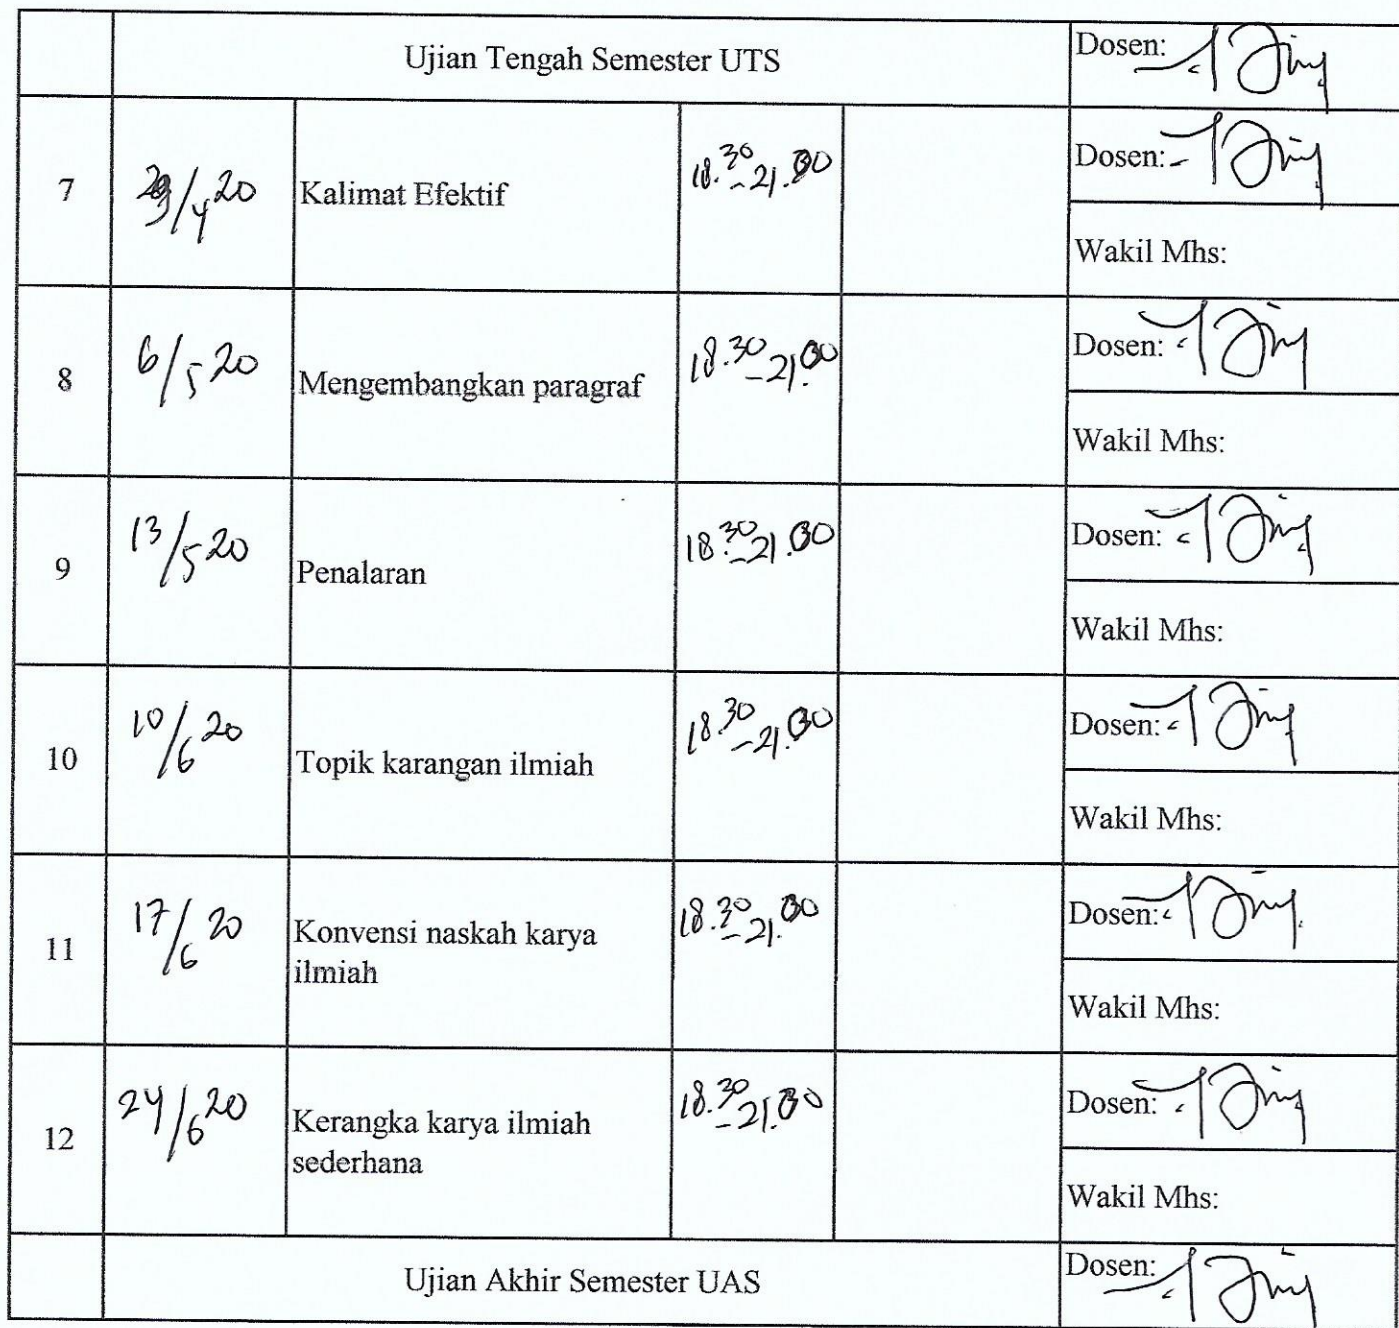 Ujian Tengah Semester UTS
Dosen:
7
/4 20
Kalimat Efektif
18.30
-21.00
Dosen:
Wakil Mhs:
8
6/5 20
Mengembangkan paragraf
18.30
-21.00
Dosen:
Wakil Mhs:
9
13/5 20
Penalaran
18.30
-21.00
Dosen:
Wakil Mhs:
10
10/6 20
Topik karangan ilmiah
18.30
-21.00
Dosen:
Wakil Mhs:
11
17/6 20
Konvensi naskah karya
ilmiah
18.30
-21.00
Dosen:
Wakil Mhs:
12
24/6 20
Kerangka karya ilmiah
sederhana
18.30
-21.00
Dosen:
Wakil Mhs:
Ujian Akhir Semester UAS
Dosen: